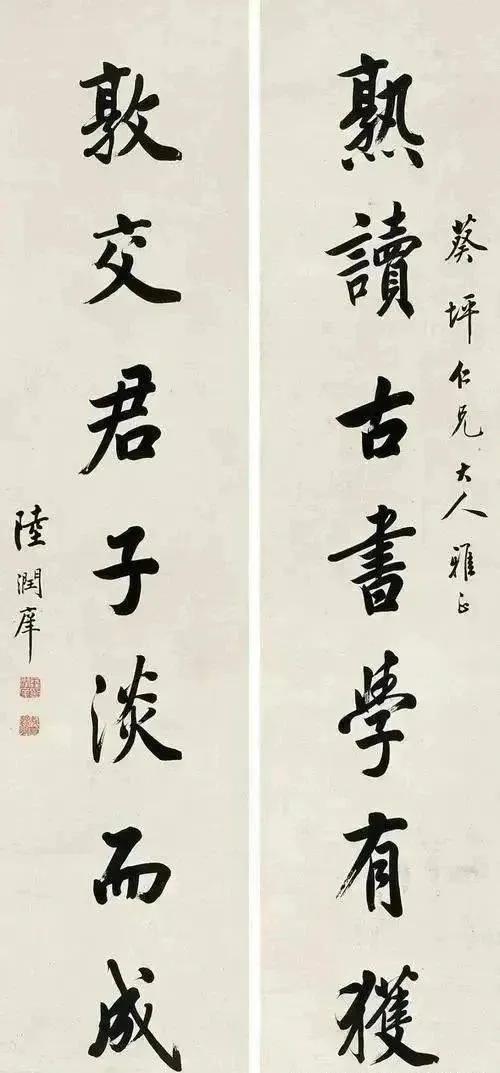 葵坪仁兄大人雅正
熟讀古書學有獲
敦交君子淡而成
陸潤庠